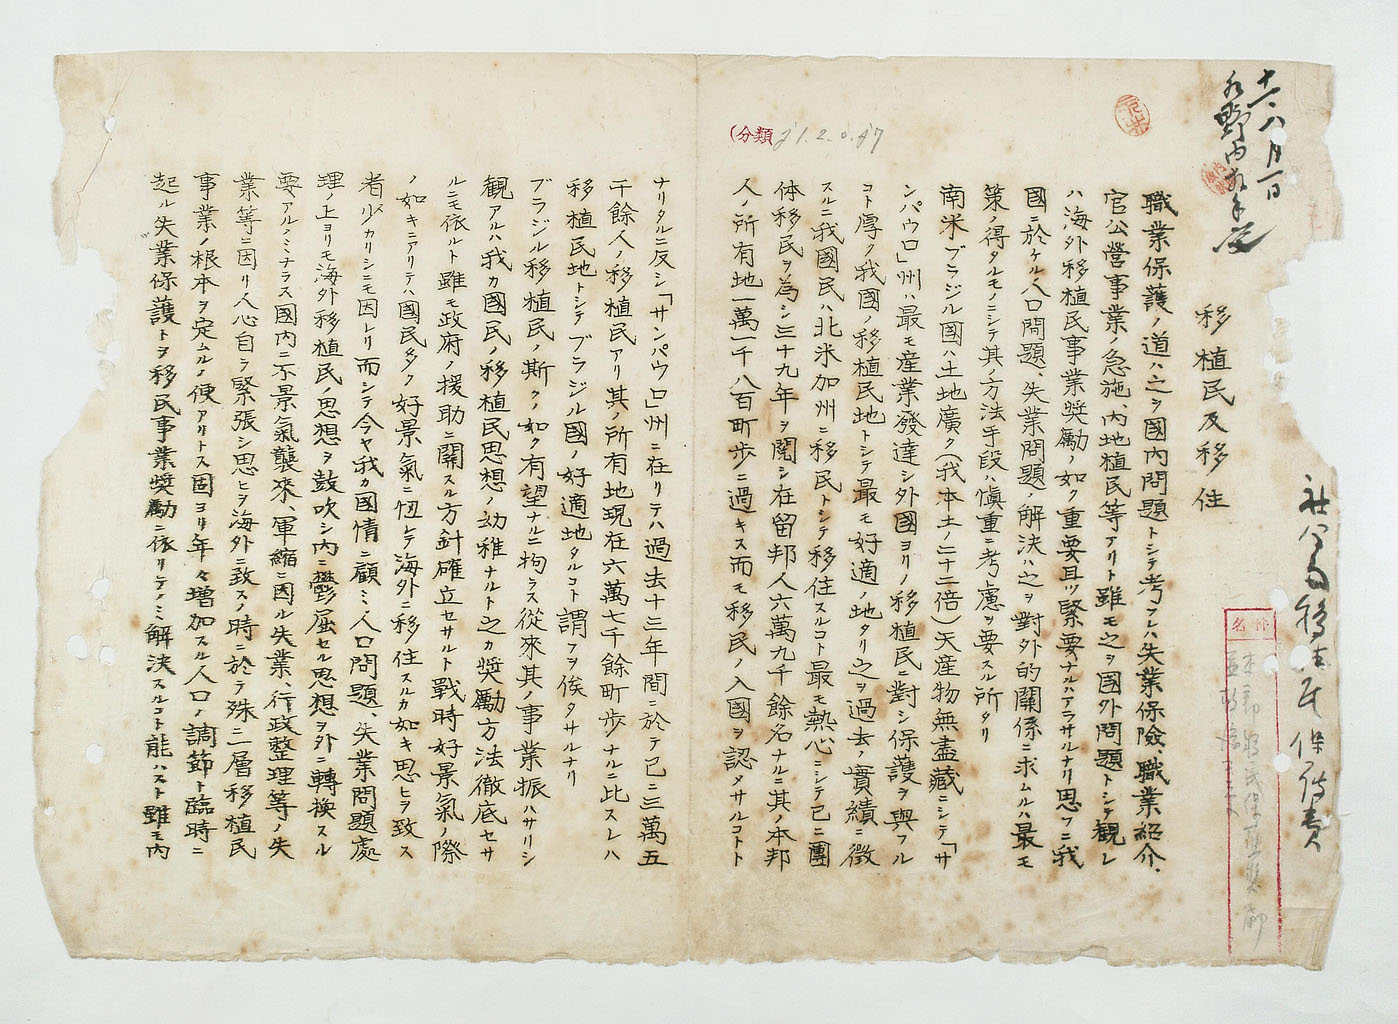 十一、八月一日
水野内相手交
移植民及移住
職業保護ノ道ハ之ヲ國內問題トシテ考フレハ失業保險、職業紹介、
官公營事業ノ急施、內地植民等アリト雖モ之ヲ國外問題トシテ觀レ
ハ海外移植民事業奬勵ノ如ク重要且ツ緊要ナルハアラサルナリ思フニ我
國ニ於ケル人口問題、失業問題ノ解決ハ之ヲ對外的關係ニ求ムルハ最モ
策ノ得タルモノニシテ其ノ方法手段ハ愼重ニ考慮ヲ要スル所タリ
南米ブラジル國ハ土地廣ク(我本土ノ二十二倍)天産物無盡藏ニシテ「サ
ンパウロ」州ハ最モ産業發達シ外國ヨリノ移植民ニ對シ保護ヲ與フル
コト厚ク我國ノ移植民地トシテ最モ好適ノ地タリ之ヲ過去ノ實績ニ徵
スルニ我國民ハ北米加州ニ移民トシテ移住スルコト最モ熱心ニシテ已ニ團
体移民ヲ為シ三十九年ヲ閱シ在留邦人六萬九千餘名ナルニ其ノ本邦
人ノ所有地一萬一千八百町步ニ過キス而モ移民ノ入國ヲ認メサルコトト
ナリタルニ反シ「サンパウロ」州ニ在リテハ過去十三年間ニ於テ已ニ三萬五
千餘人ノ移植民アリ其ノ所有地現在六萬七千餘町步ナルニ比スレハ
移植民地トシテブラジル國ノ好適地タルコト謂フヲ俟タサルナリ
ブラジル移植民ノ斯クノ如ク有望ナルニ拘ラス從來其ノ事業振ハサリシ
觀アルハ我カ國民ノ移植民思想ノ幼稚ナルト之カ奬勵方法徹底セサ
ルニモ依ルト雖モ政府ノ援助ニ關スル方針確立セサルト戰時好景氣ノ際
ノ如キニアリテハ國民多ク好景氣ニ忸レテ海外ニ移住スルカ如キ思ヒヲ致ス
者少カリシニモ因レリ而シテ今ヤ我カ國情ニ顧ミ人口問題、失業問題處
理ノ上ヨリモ海外移植民ノ思想ヲ鼓吹シ內ニ鬱屈セル思想ヲ外ニ轉換スル
要アルノミナラス國內ニ不景氣襲來、軍縮ニ因ル失業、行政整理等ノ失
業等ニ因リ人心自ラ緊張シ思ヒヲ海外ニ致スノ時ニ於テ殊ニ一層移植民
事業ノ根本ヲ定ムルノ便アリトス固ヨリ年々增加スル人口ノ調節ト臨時ニ
起ル失業保護トヲ移民事業奬勵ニ依リテノミ解決スルコト能ハスト雖モ內
(分類
J1.2.0.J7
件名
本邦移民保護奬勵